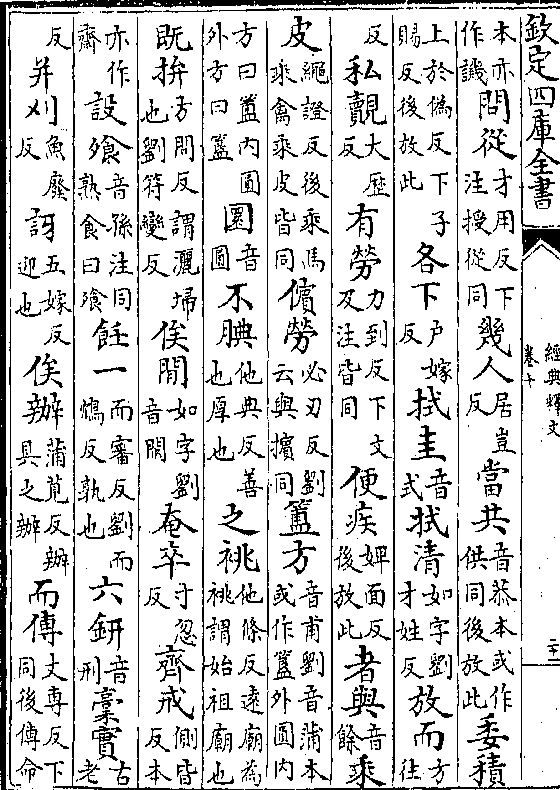 欽定四庫全書
經典釋文
卷十
二十
本亦作譏問從才用反下注授從同幾人居豈反當共音恭本或作供同後放此委積
上於偽反下子賜反後放此各下户嫁反拭圭音式拭清如字劉才姓反放而方往
反私覿大歷反有勞力到反下文及注皆同便疾婢面反後放此者與音餘乘
皮繩證反後乘馬乘禽乘皮皆同儐勞必刃反劉云與擯同簠方音甫劉音蒲本或作簋外圓内
方曰簠内圓外方曰簋圜音圓不腆他典反善也厚也之祧他條反遠廟為祧謂始祖廟也
既拚方問反謂灑埽也劉符變反俟閒如字劉音閑奄卒寸忽反齊戒側皆反本
亦作齋設飱音孫注同熟食曰飱飪一而審反劉而鴆反孰也六鈃音刑稾實古老
反并刈魚廢反訝五嫁反迎也俟辦蒲莧反辦具之辦而傳丈專反下同後傳命